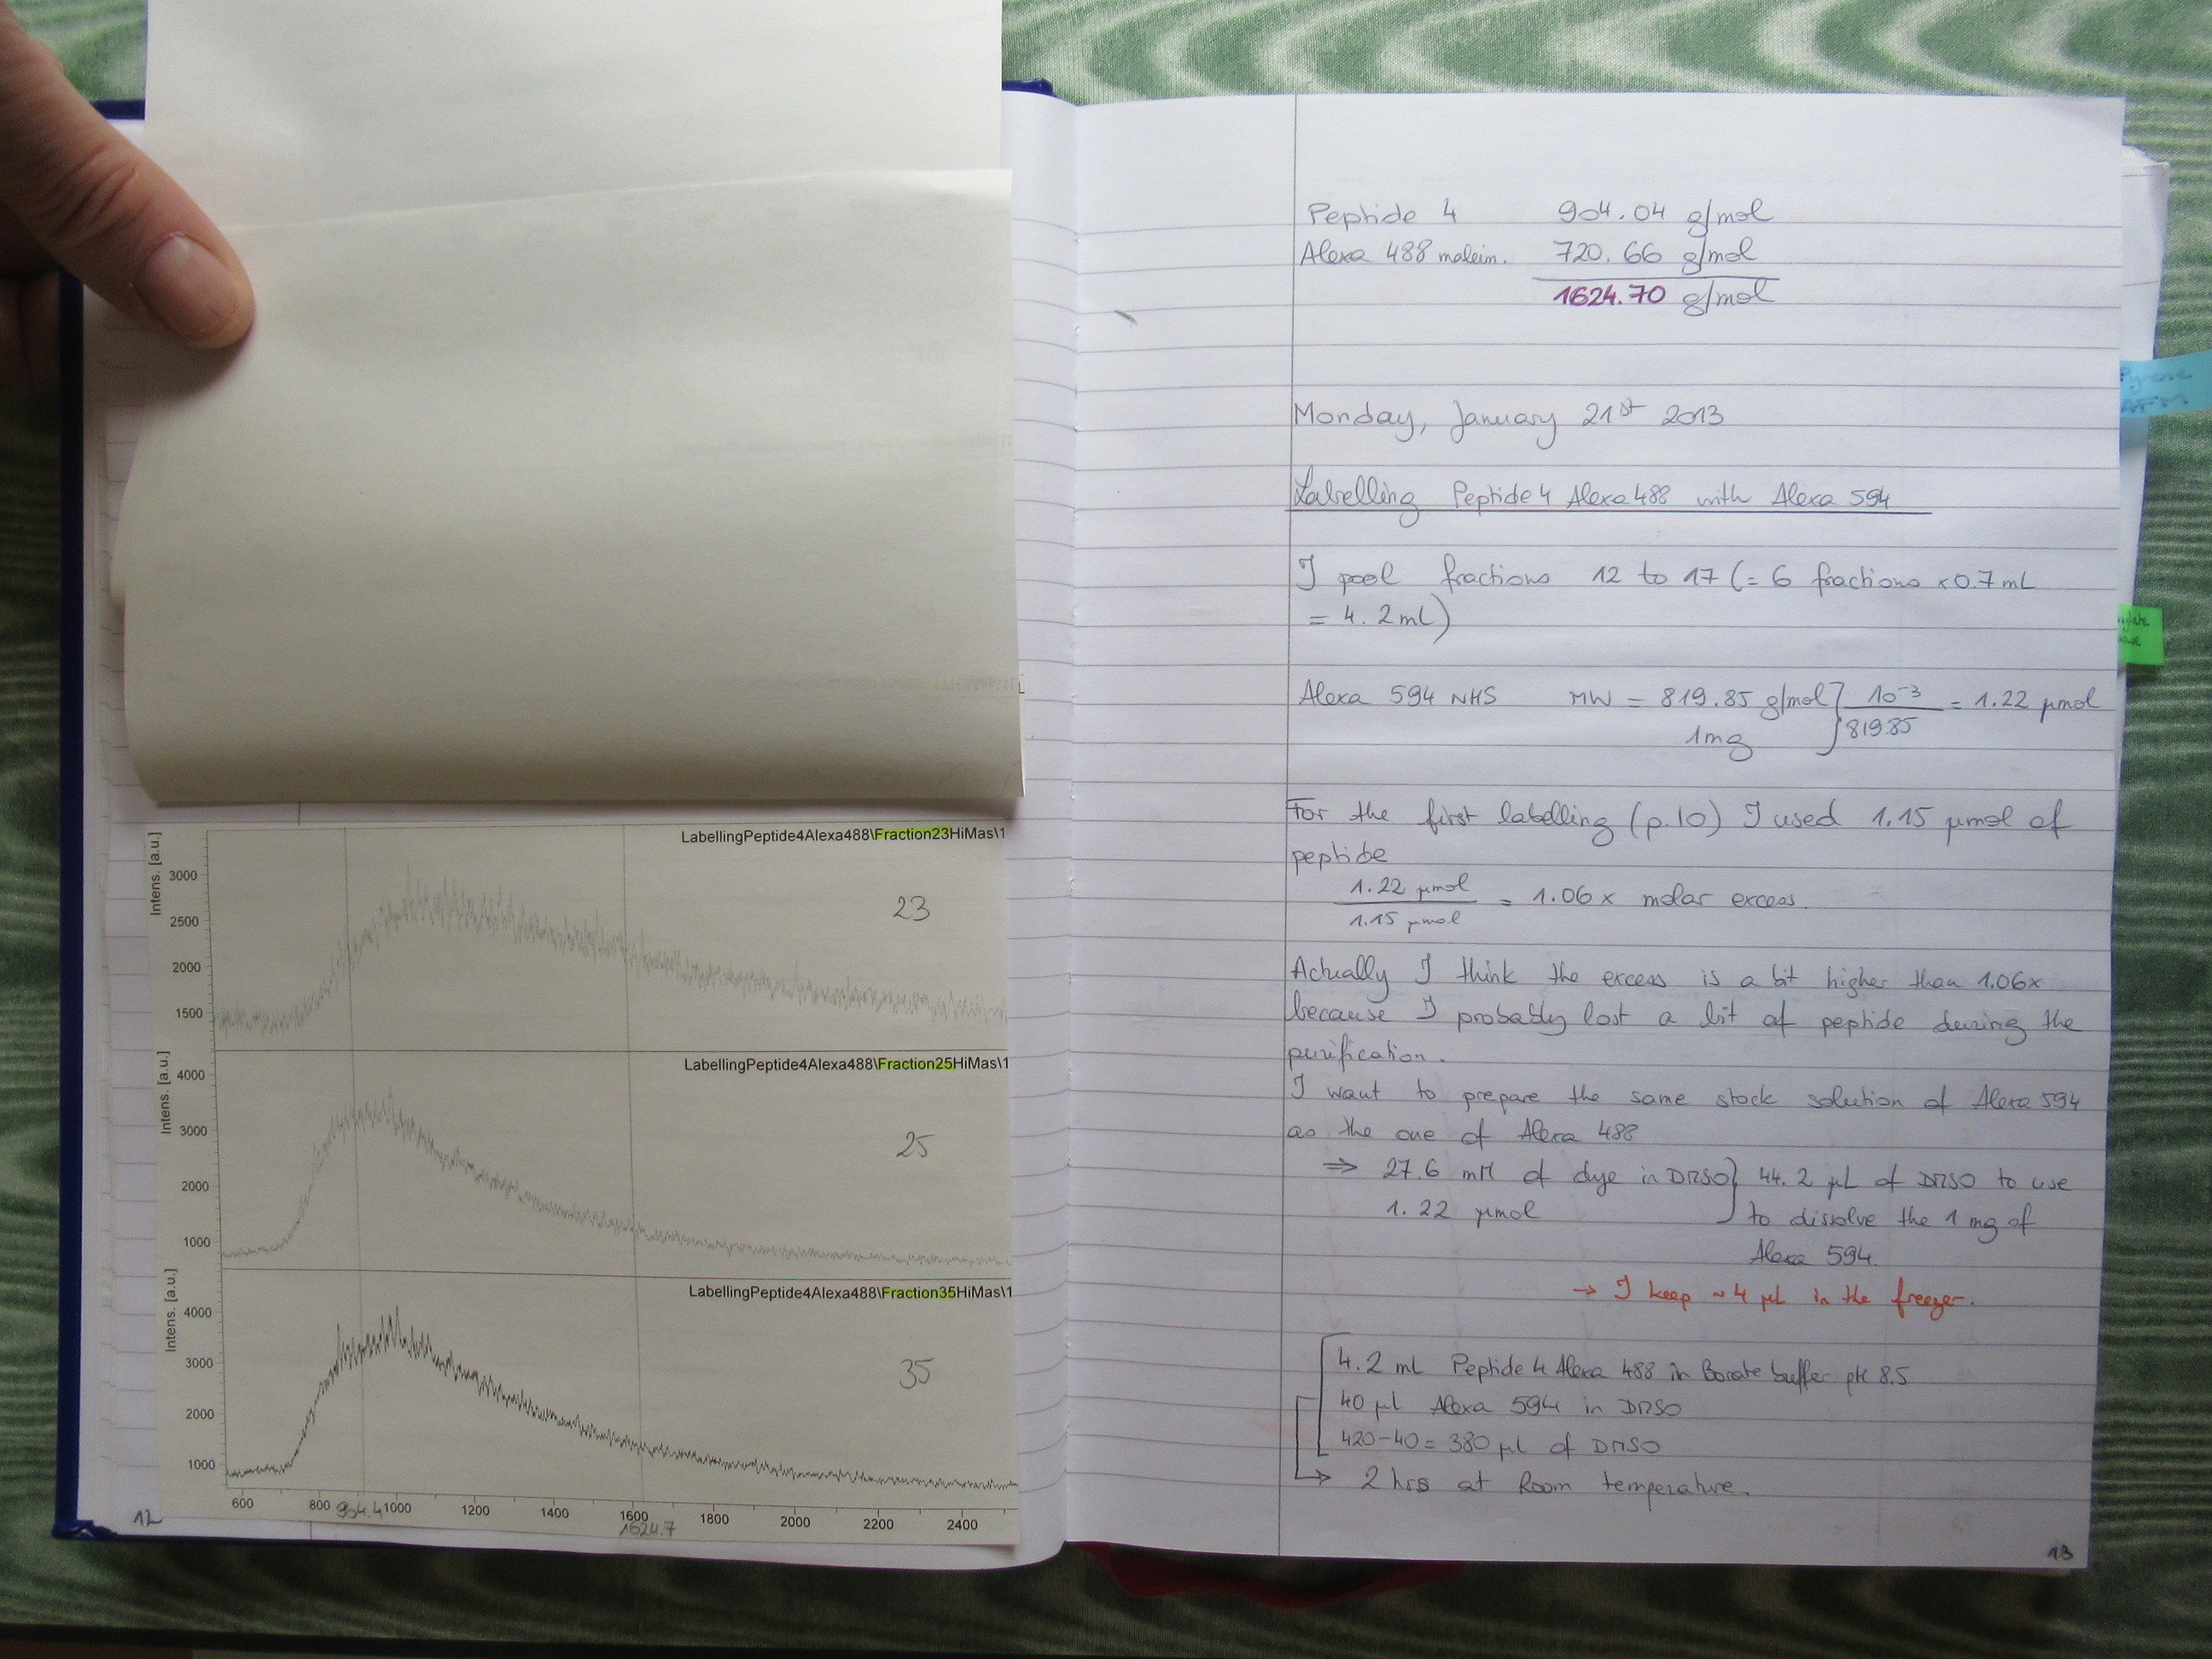 LabellingPeptide4Alexa488\Fraction23HiMas\1
Intens. [a.u.]
3000
2500
2000
1500
23
LabellingPeptide4Alexa488\Fraction25HiMas\1
Intens. [a.u.]
4000
3000
2000
1000
25
LabellingPeptide4Alexa488\Fraction35HiMas\1
Intens. [a.u.]
4000
3000
2000
1000
35
600 800 1000 1200 1400 1600 1800 2000 2200 2400
904.4 1624.7
12
Peptide 4 904.04 g/mol
Alexa 488 maleim. 720.66 g/mol
1624.70 g/mol
Monday, January 21st 2013
Labelling Peptide 4 Alexa 488 with Alexa 594
I pool fractions 12 to 17 (= 6 fractions x 0.7 mL
= 4.2 mL)
Alexa 594 NHS MW = 819.85 g/mol } 10-3 / 819.85 = 1.22 µmol
1 mg
For the first labelling (p.10) I used 1.15 µmol of
peptide
1.22 µmol / 1.15 µmol = 1.06 x molar excess.
Actually I think the excess is a bit higher than 1.06x
because I probably lost a bit of peptide during the
purification.
I want to prepare the same stock solution of Alexa 594
as the one of Alexa 488
⇒ 27.6 mM of dye in DMSO } 44.2 µL of DMSO to use
1.22 µmol to dissolve the 1 mg of
Alexa 594.
→ I keep ~ 4 µl in the freezer.
4.2 ml Peptide 4 Alexa 488 in Borate buffer pH 8.5
40 µl Alexa 594 in DMSO
420-40 = 380 µl of DMSO
→ 2 hrs at Room temperature.
13
AFM